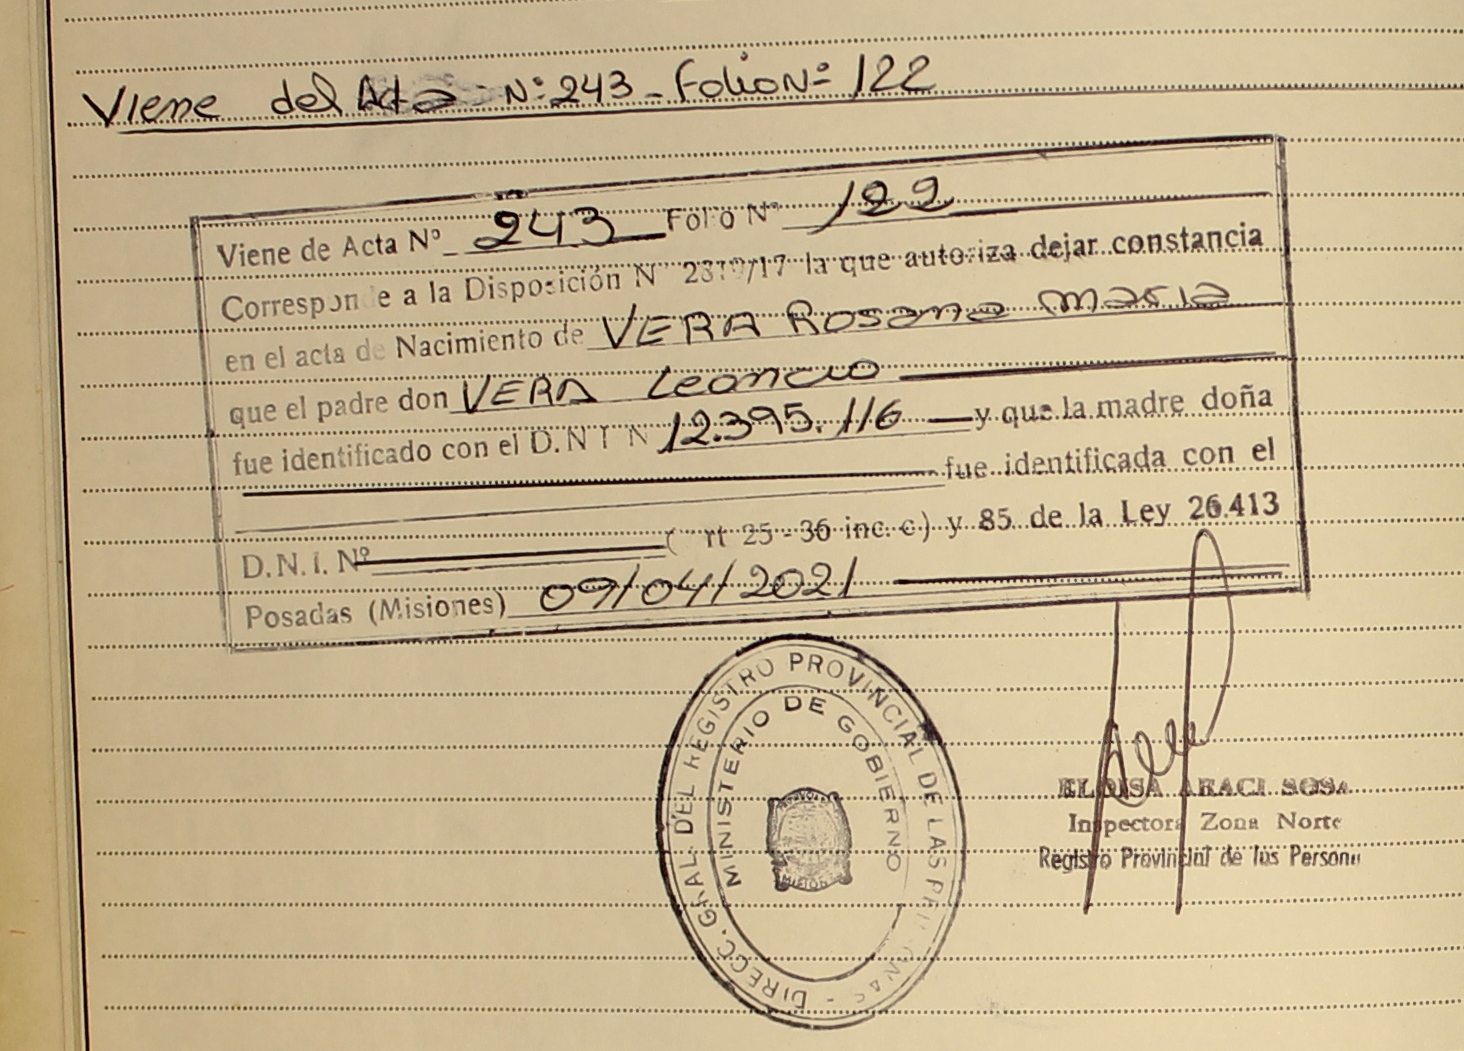 Viene del Acta N° 243 - Folio N° 122
Viene de Acta Nº 243 Folio Nº 122
Corresponde a la Disposición N /17 la que autoriza dejar constancia
en el acta de Nacimiento de VERA Rosana Maria
que el padre don VERA Leoncio
fue identificado con el D.N.I N 12.395.116 y que la madre doña
fue identificada con el
D.N.I. Nº ( rt 25 - 36 inc. c) y 85 de la Ley 26.413
Posadas (Misiones) 09/04/2021
DIRECC. GRAL. DEL REGISTRO PROVINCIAL DE LAS PERSONAS -
MINISTERIO DE GOBIERNO
ELOISA ARACI SOSA
Inspectora Zona Norte
Registro Provincial de las Persona